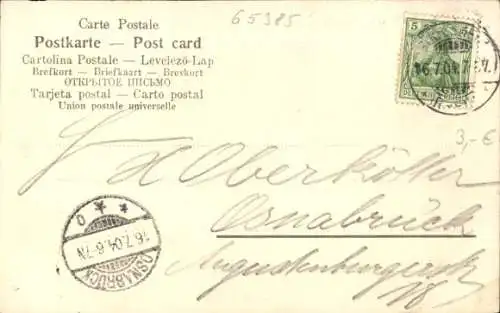 65385
Carte Postale
Postkarte — Post card
Cartolina Postale — Levelező-Lap
Brefkort — Briefkaart — Brevkort
ОТКРЫТОЕ ПИСЬМО
Tarjeta postal — Carto postal
Union postale universelle
5
16.7.04.7
3,- €
H Oberkötter
Osnabrück
Augustenburgerstr
16.7.04.6-7N
OSNABRÜCK